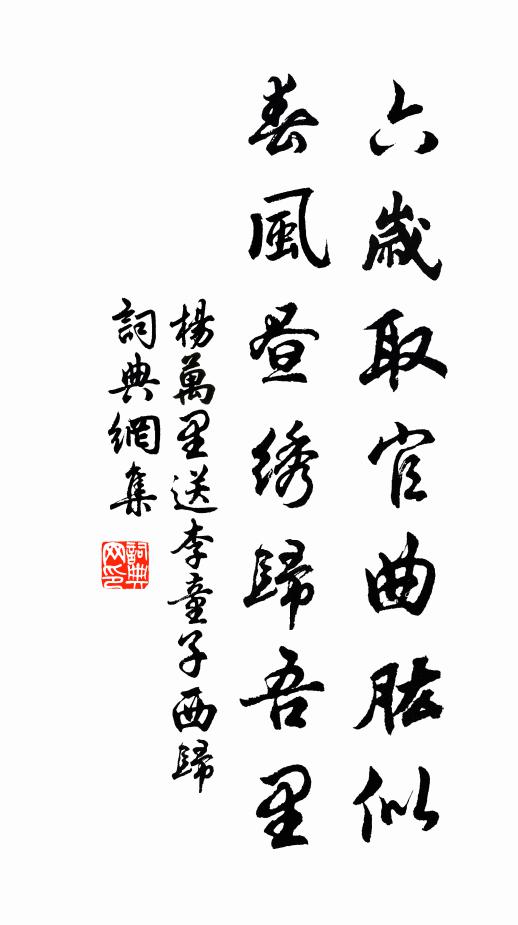 六歲取官曲肱似
春風晝綉歸吾里
楊萬里送李童子西歸
詞典網集
詞典网印